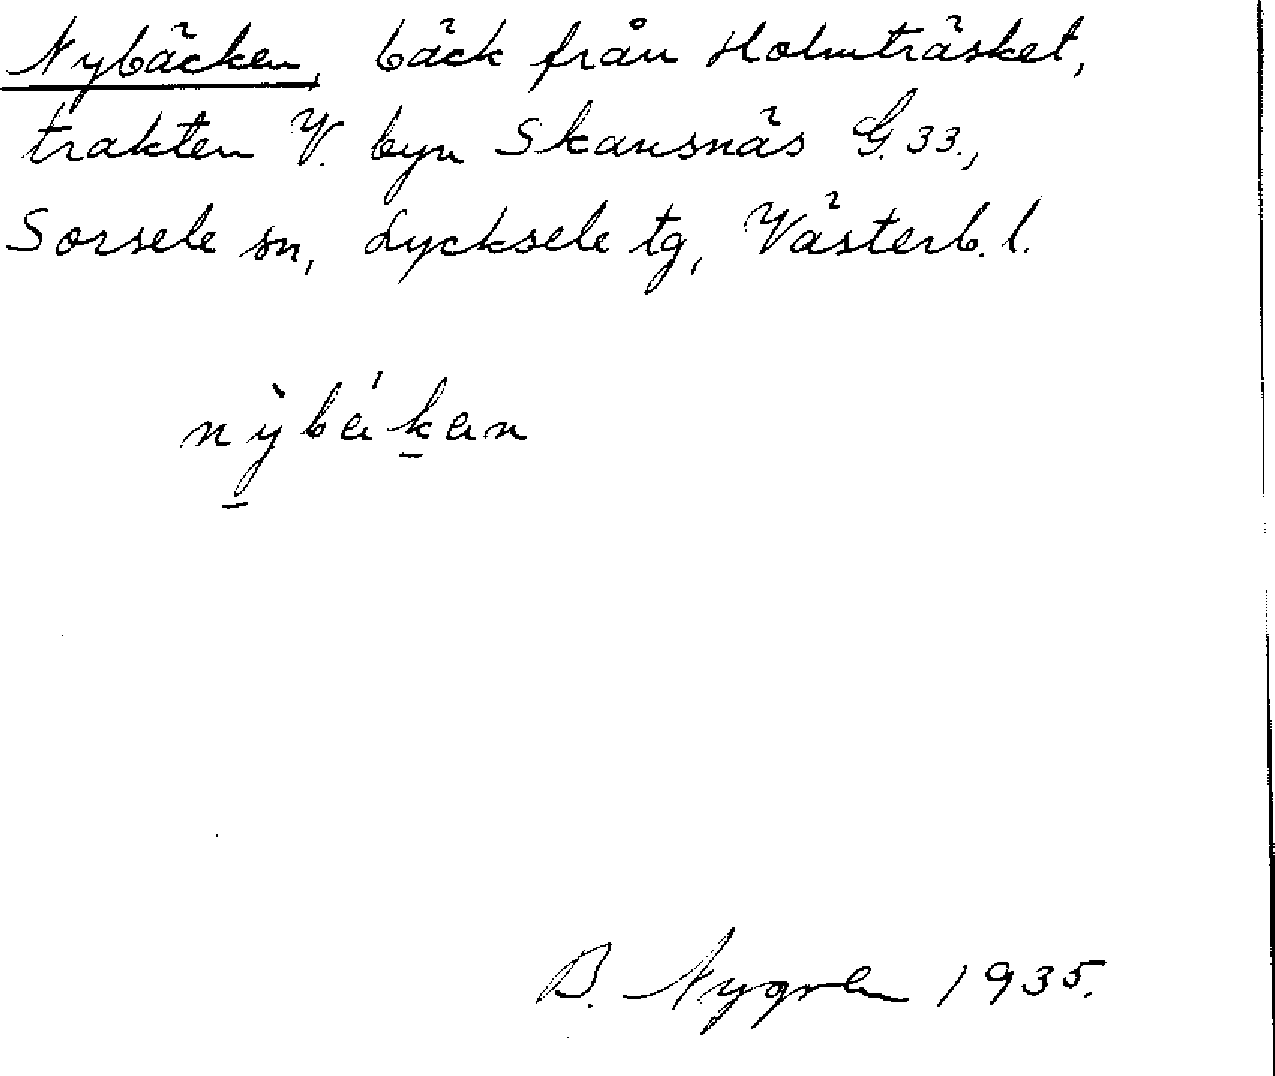 Nybäcken, bäck från Holmträsket,
trakten V. byn Skansnäs G. 33.,
Sorsele sn, Lycksele tg, Västerb. l.
nỳ̠bá k̠an
B. Nygren 1935.